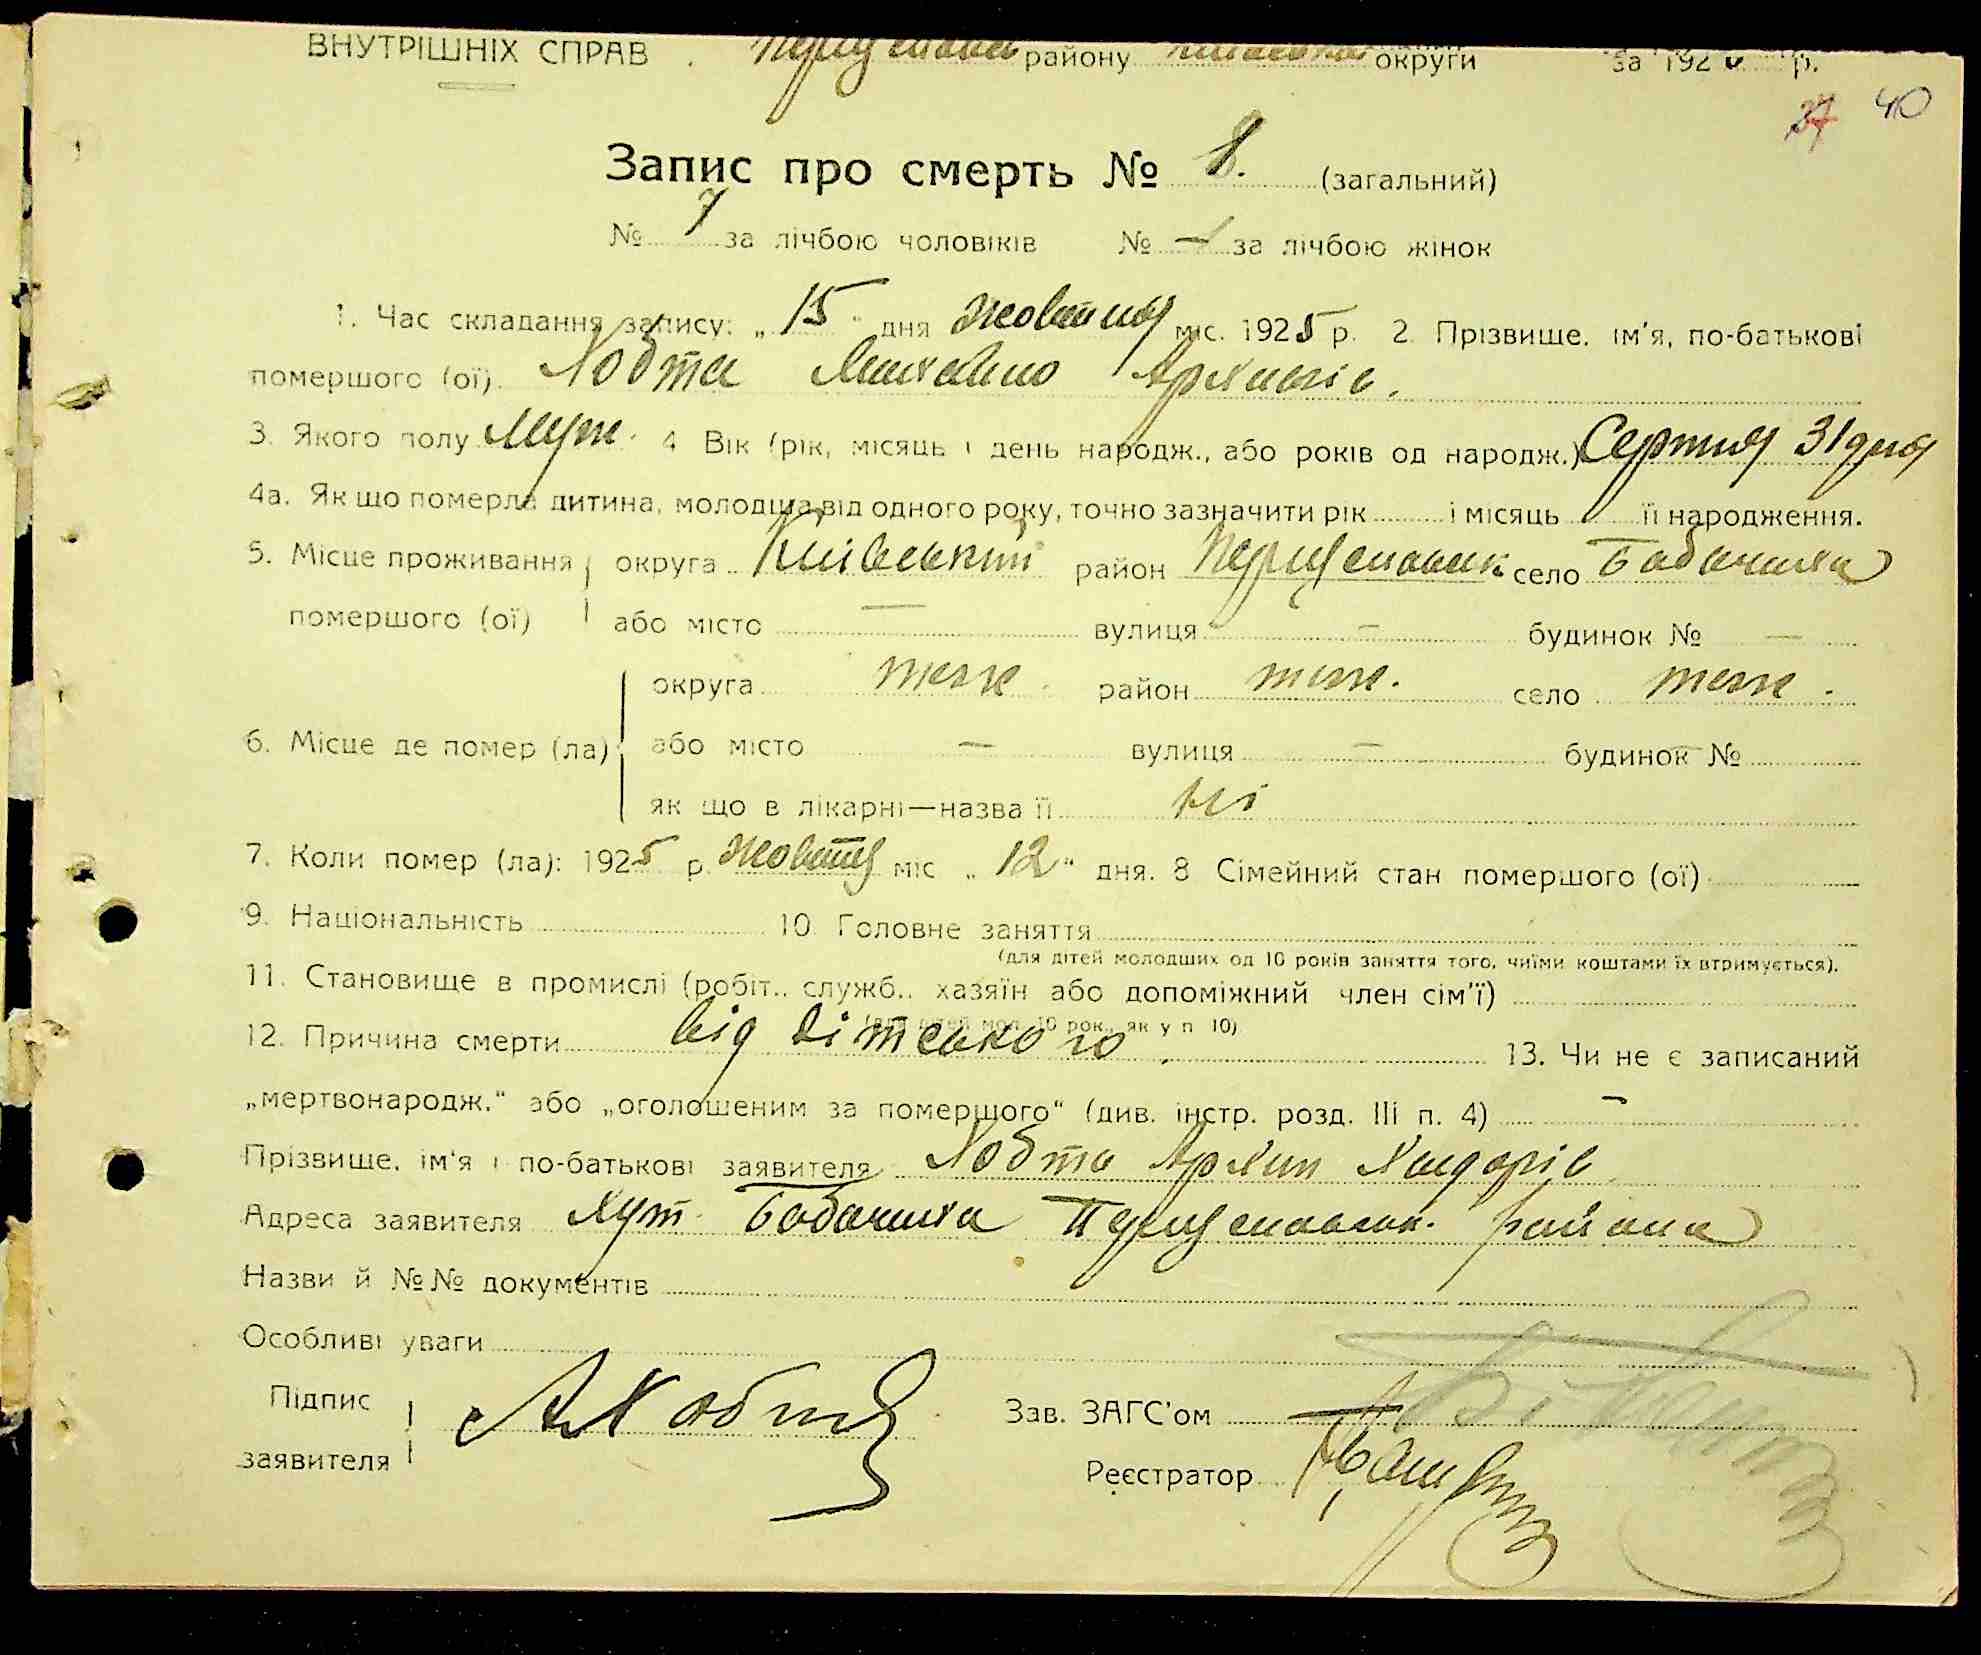 ВНУТРІШНІХ СПРАВ району округи за 192 р.
37 40
Запис про смерть № 8. (загальний)
№ 7 за лічбою чоловіків № — за лічбою жінок
1. Час складання запису: „15" дня Жовтня міс. 1925 р. 2. Прізвище, ім'я, по-батькові
помершого (ої). Хобта Михайло Архипів.
3. Якого полу Муж. 4 Вік (рік, місяць і день народж., або років од народж.) Серпня 31 дня
4а. Як що померла дитина, молодша від одного року, точно зазначити рік і місяць її народження.
5. Місце проживання округа Київський район село Бабачиха
помершого (ої) або місто — вулиця — будинок № —
округа теж. район теж. село теж.
6. Місце де помер (ла) або місто — вулиця — будинок № —
як що в лікарні—назва її ні
7. Коли помер (ла): 1925 р. Жовтня міс „12" дня. 8 Сімейний стан помершого (ої)
9. Національність 10. Головне заняття
(для дітей молодших од 10 років заняття того, чиїми коштами їх втримується).
11. Становище в промислі (робіт., служб., хазяїн або допоміжний член сім'ї)
(для дітей мол. 10 рок., як у п 10)
12. Причина смерти від дітського. 13. Чи не є записаний
„мертвонародж." або „оголошеним за померщого" (див. інстр. розд. III п. 4) —
Прізвище, ім'я і по-батькові заявителя Хобта Архип
Адреса заявителя Хут. Бабачиха района
Назви й №№ документів
Особливі уваги
Підпис
заявителя АХобта
Зав. ЗАГС'ом
Реєстратор